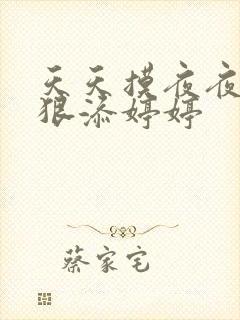 天天摸夜夜
狠添婷婷
蔡家宅